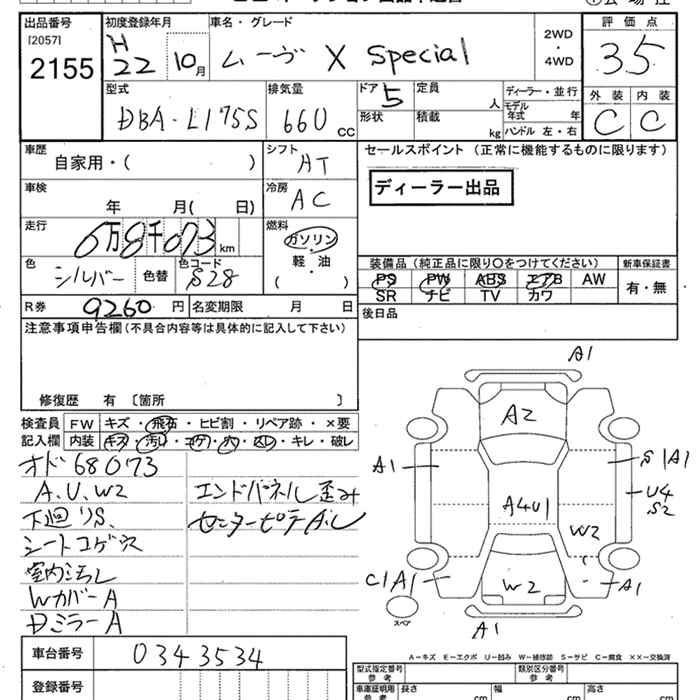 出品番号 初度登録年月 車名・グレード 評価点
[2057]
2155 H22 10月 ムーヴ X Special 2WD・4WD 3.5
型式 排気量 ドア 5 定員 人 ディーラー・並行 外装 内装
DBA-L175S 660 CC 形状 積載 kg モデル年式 年 C C
ハンドル 左・右
車歴 シフト セールスポイント (正常に機能するものに限ります)
自家用・( ) AT
ディーラー出品
車検 冷房
年 月( 日) AC
走行 燃料
6万8千073km ガソリン・軽油
( )
色 シルバー 色替 色コード S28
装備品(純正品に限り〇をつけてください) 新車保証書
PS PW ABS エアB AW 有・無
SR ナビ TV カワ
R券 9260円 名変期限 月 日 後日品
注意事項申告欄(不具合内容等は具体的に記入して下さい)
修復歴 有 〔箇所 〕
検査員記入欄 FW キズ・飛石・ヒビ割・リペア跡・×要
内装 キズ・汚れ・コゲ・穴・スレ・キレ・破レ
オド68073
A.U.W2 エンドパネル歪み
下廻りS. センターピラーA.U
シートコゲ穴
室内汚レ
WカバーA
DミラーA
A1
A2
A1 S1A1
U4
S2
A4U1
W2
C1A1 W2 A1
スペア
A1
A-キズ E-エクボ U-凹み W-補修跡 S-サビ C-腐食 ××-交換済
車台番号 0343534
型式指定番号 参考 類別区分番号 参考
登録番号 車庫証明用 参考 長さ cm 幅 cm 高さ cm